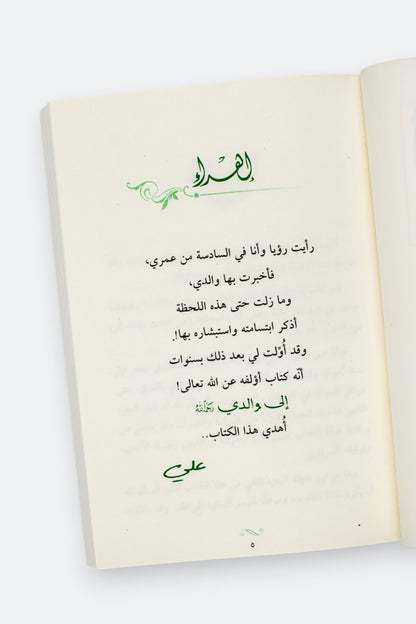 إهداء
رأيت رؤيا وأنا في السادسة من عمري،
فأخبرت بها والدي،
وما زلت حتى هذه اللحظة
أذكر ابتسامته واستبشاره بها!.
وقد أُوِّلت لي بعد ذلك بسنوات
أنّه كتاب أؤلفه عن الله تعالى!
إلى والدي رحمه الله
أُهدي هذا الكتاب..
علي
٥